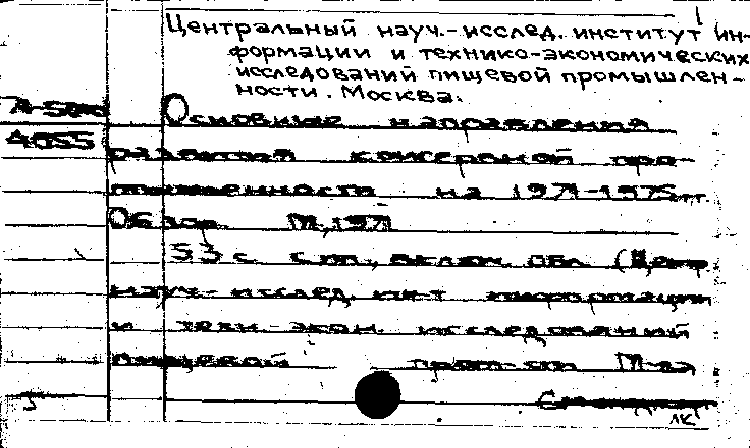 Центральный науч.-исслед. институт ин-
формации и технико-экономических
исследований пищевой промышлен-
ности. Москва.
Основные направления
4055
развития консервной про-
мышленности на 1971-1975гг.
Обзор. М., 1971
53 с. с ил., включ. обл. (Центр.
науч.- исслед. ин-т информации
и техн.-экон. исследований
пищевой пром-сти М-ва
ЛК